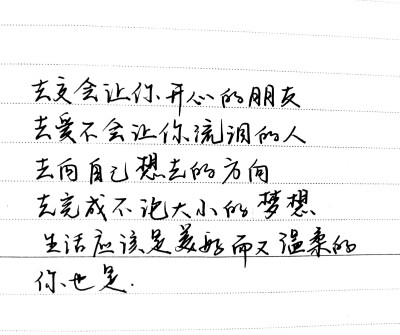 去交会让你开心的朋友
去爱不会让你流泪的人
去向自己想去的方向
去完成不论大小的梦想
生活应该是美好而又温柔的
你也是.